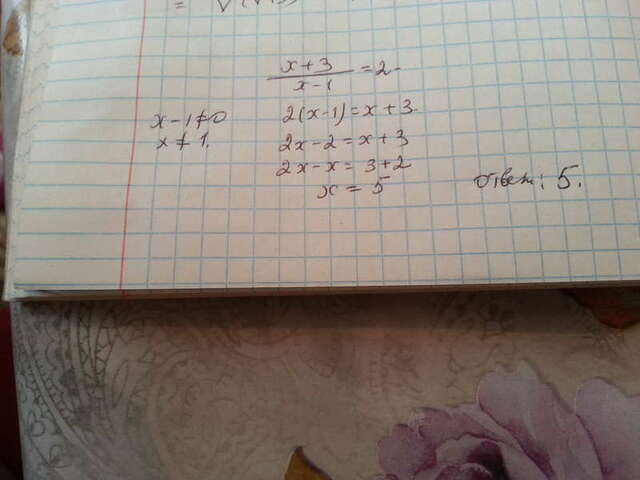 x+3
x-1 = 2
x-1≠0
x≠1.
2(x-1)=x+3.
2x-2=x+3
2x-x=3+2
x=5
ответ: 5.